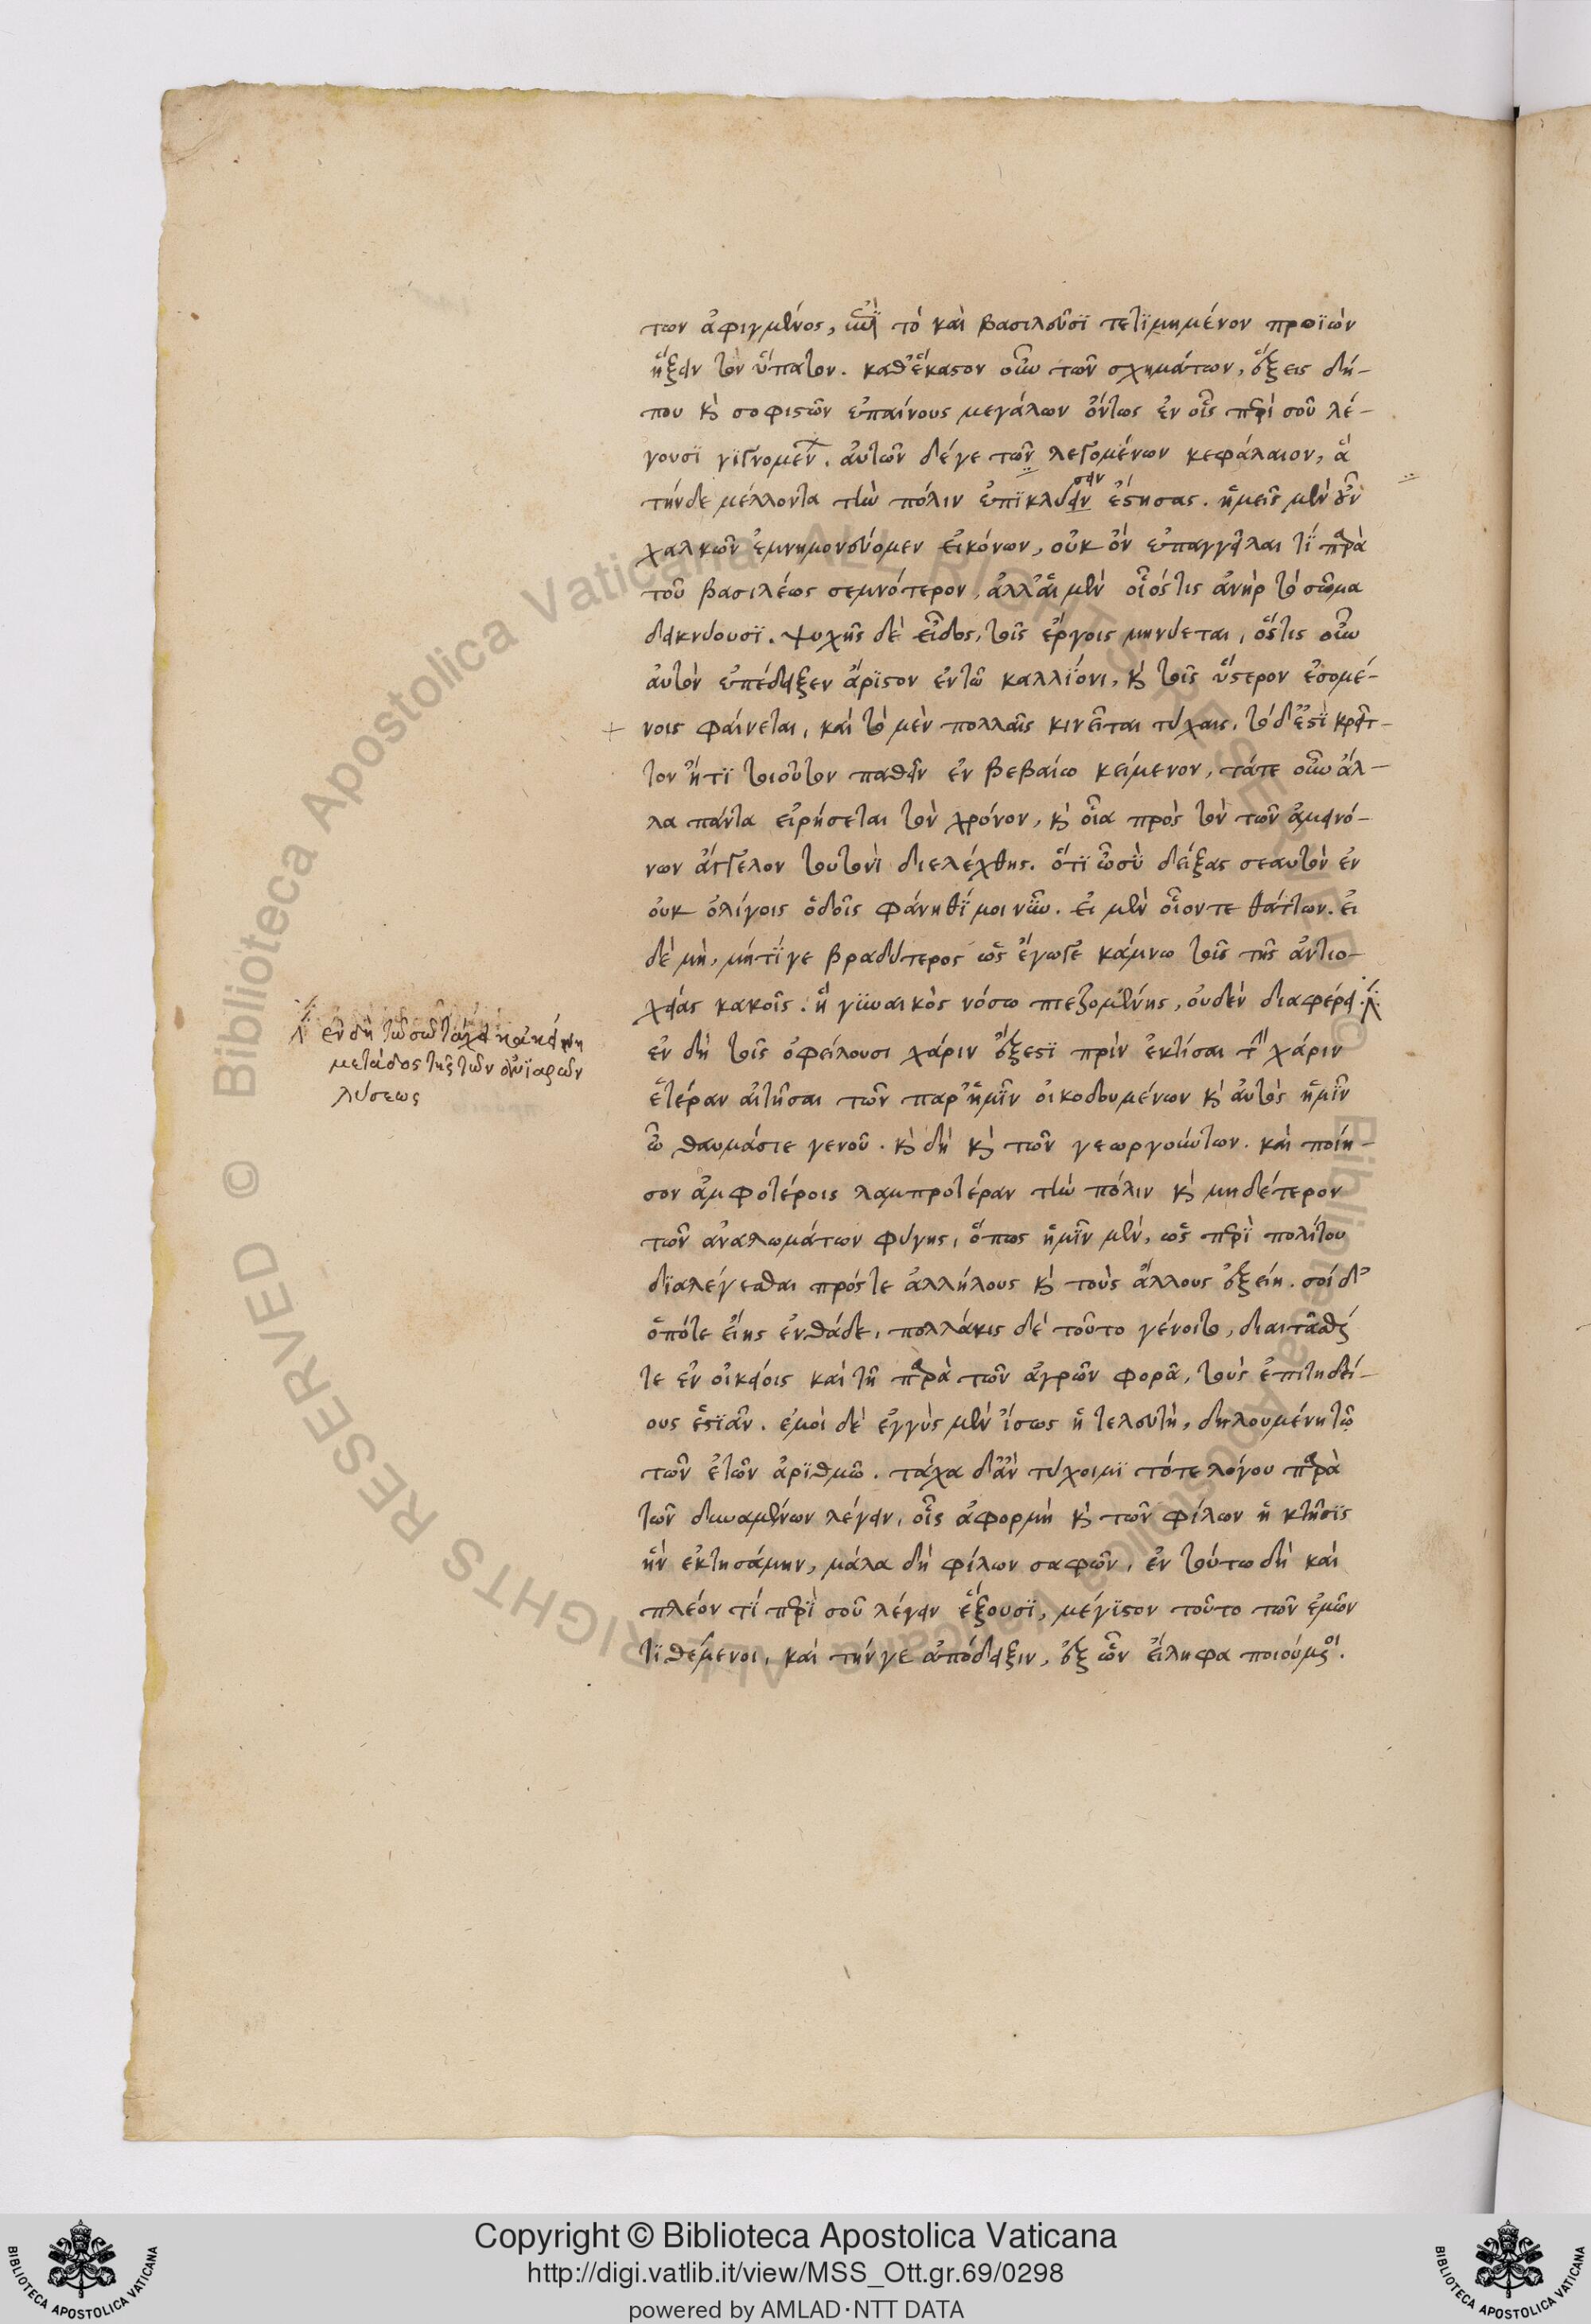 των ἀφιγμένος, ἐπὶ τὸ καὶ βασιλεῦσϊ τετϊμημένον προϊὼν
ἥξειν τὸν ὕπατον. καθ' ἕκαστον οὖν τῶν σχημάτων, ἕξεις δή-
που καὶ σοφιστῶν ἐπαίνους μεγάλων ὄντως ἐν οἷς περὶ σοῦ λέ-
γουσϊ γϊγνομεν. αὐτῶν δέ γε τῶν λεγομένων κεφάλαιον, ἃ
τήνδε μέλλοντα τὴν πόλιν ἐπϊκλύσειν ἔστησας. ἡμεῖς μὲν οὖν
χαλκῶν ἐμνημονεύομεν εἰκόνων, οὐκ ὂν ἐπαγγεῖλαι τϊ παρὰ
τοῦ βασιλέως σεμνότερον, ἀλλ' αἱ μὲν οἷός τις ἀνὴρ τὸ σῶμα
δεικνύουσϊ. ψυχῆς δὲ εἶδος, τοῖς ἔργοις μηνύεται, ὅστις οὖν
αὐτὸν ἐπέδειξεν ἄρϊστον ἐν τῶ καλλίονι, καὶ τοῖς ὕστερον ἐσομέ-
νοις φαίνεται, καὶ τὸ μὲν πολλαῖς κινεῖται τύχαις. τὸ δ' ἐστὶ κρεῖτ-
τον ἤ τϊ τοιοῦτον παθεῖν ἐν βεβαίω κείμενον, τά τε οὖν ἄλ-
λα πάντα εἰρήσεται τὸν χρόνον, καὶ οἷα πρὸς τὸν τῶν ἀμεινό-
νων ἄγγελον τουτονὶ διελέχθης. ὅτϊ ὦ σὺ δείξας σεαυτὸν ἐν
οὐκ ὀλίγοις ὁδοῖς φάνηθί μοι νῦν. εἰ μὲν οἷόν τε θᾶττων. εἰ
δὲ μὴ, μήτϊ γε βραδύτερος ὡς ἔγωγε κάμνω τοῖς τῆς ἀντιο-
χείας κακοῖς. ἢ γυναικὸς νόσω πιεζομένης, οὐδὲν διαφέρει
ἐν δὴ τοῖς ὀφείλουσι χάριν ἔξεστϊ πρὶν ἐκτίσαι τὴν χάριν
ἑτέραν αἰτῆσαι τῶν παρ' ἡμῖν οἰκοδομένων καὶ αὐτὸς ἡμῖν
ὦ θαυμάσιε γενοῦ. καὶ δὴ καὶ τῶν γεωργούντων. καὶ ποίη-
σον ἀμφοτέροις λαμπροτέραν τὴν πόλιν καὶ μηδέτερον
τῶν ἀναλωμάτων φύγης, ὅπως ἡμῖν μὲν, ὡς περὶ πολίτου
δϊαλέγεσθαι πρός τε ἀλλήλους καὶ τοὺς ἄλλους ἐξείη. σοὶ δ'
ὁπότε εἴης ἐνθάδε, πολλάκις δὲ τοῦτο γένοιτο, διαιτᾶσθαί
τε ἐν οἰκείοις καὶ τῆ παρὰ τῶν ἀγρῶν φορᾶ, τοὺς ἐπιτηδεί-
ους ἑστϊᾶν. ἐμοὶ δὲ ἐγγὺς μὲν ἴσως ἡ τελευτὴ, δηλουμένη τῶ
τῶν ἐτῶν ἀρϊθμῶ. τάχα δ' ἂν τύχοιμϊ τότε λόγου παρὰ
τῶν δυναμένων λέγειν, οἷς ἀφορμὴ καὶ τῶν φίλων ἡ κτῆσϊς
ἣν ἐκτησάμην, μάλα δὴ φίλων σαφῶν, ἐν τούτω δὴ καὶ
πλέον τί περὶ σοῦ λέγειν ἕξουσϊ, μέγϊστον τοῦτο τῶν ἐμῶν
τϊθέμενοι, καὶ τήν γε ἀπόδειξιν, ἐξ ὧν εἴληφα ποιούμενοι.
ἐν δὴ τῶ σῶ τάχει κἀκείνη
μετάδος τῆς τῶν ἀνϊαρῶν
λύσεως
Copyright © Biblioteca Apostolica Vaticana
http://digi.vatlib.it/view/MSS_Ott.gr.69/0298
powered by AMLAD·NTT DATA